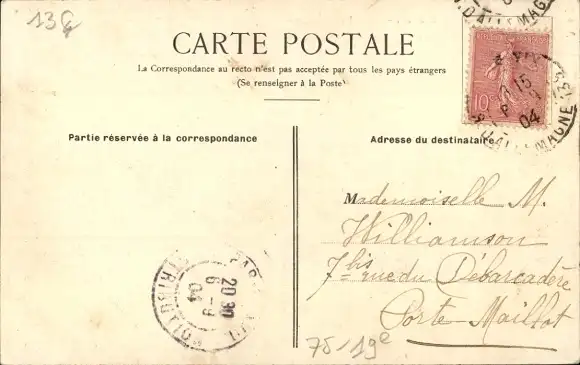 CARTE POSTALE
La Correspondance au recto n'est pas acceptée par tous les pays étrangers
(Se renseigner à la Poste)
Partie réservée à la correspondance
Adresse du destinataire
Mademoiselle M.
Williamson
7 bis rue du Débarcadère
Porte Maillot
75/19e
10
04
20 30
6 - 9
04